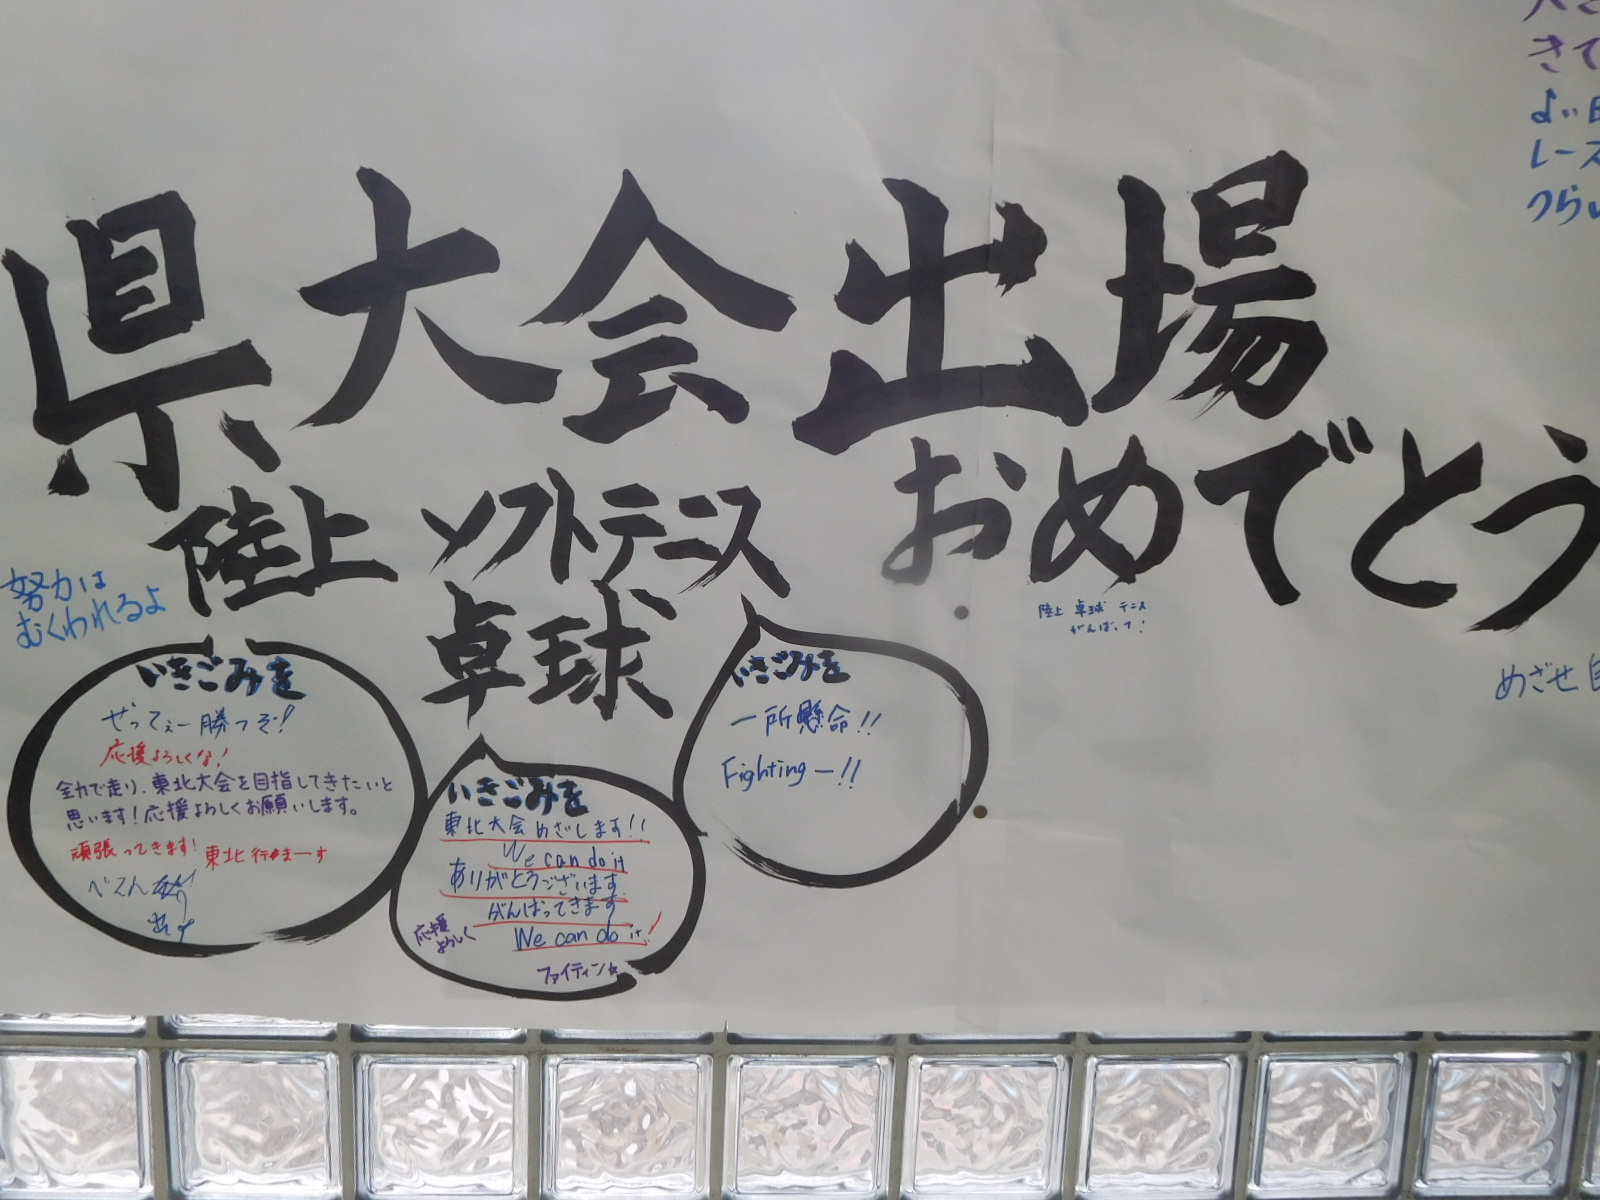 県大会出場
おめでとう
陸上 ソフトテニス
卓球
努力は
むくわれるよ
陸上 卓球 テニス
がんばって!
いきごみを
ぜってぇー勝つぞ!
応援よろしくな!
全力で走り、東北大会を目指してきたいと
思います!応援よろしくお願いします。
頑張ってきます! 東北行きまーす
いきごみを
東北大会めざします!!
We can do it
ありがとうございます
がんばってきます
We can do it!
応援
よろしく
ファイティン☆
いきごみを
一所懸命!!
Fighting ー!!
さて
よい日
レース
つらい
めざせ